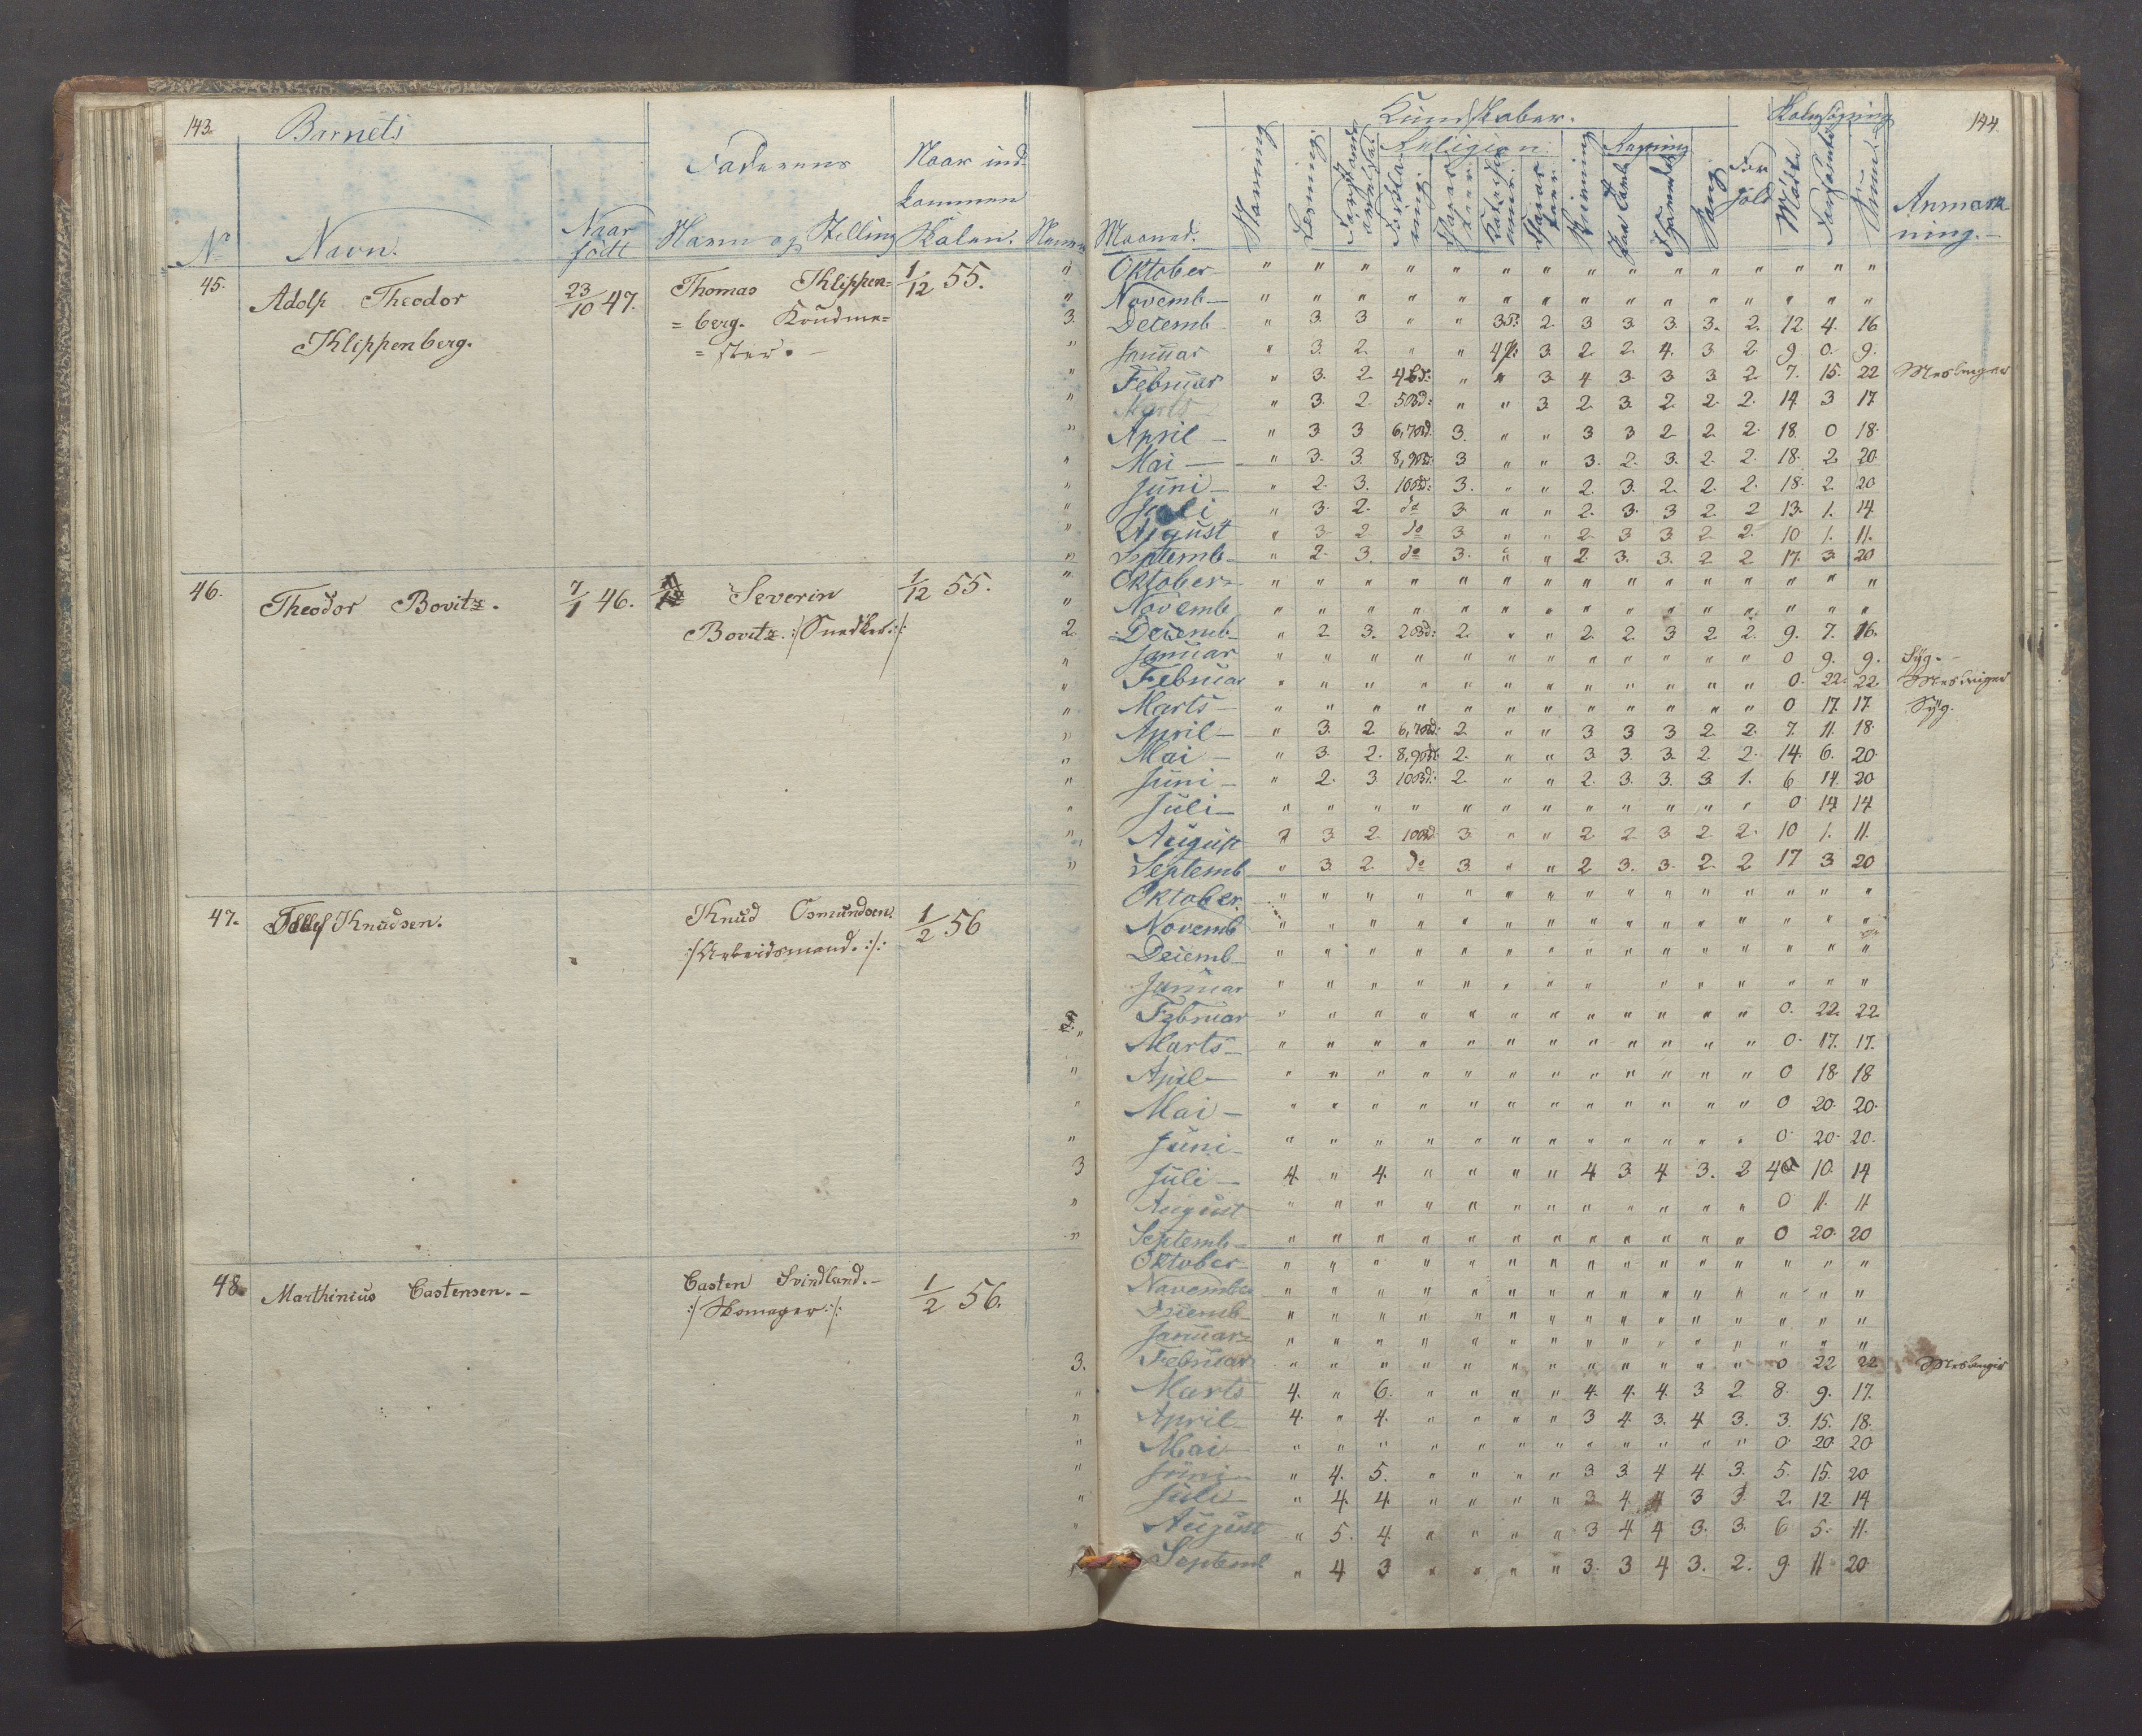 143.
Barnets
Faderens
Naar ind
kommen
No
Navn.
Naar
født
Navn og Stilling
Skolen.
45.
Adolf Theodor
Klippenberg.
23/10 47.
Thomas Klippen=
= berg. Kondme=
= ster. –
1/12 55.
3.
46.
Theodor Bovitz.
7/1 46.
Severin
Bovitz :/Snedker:/:
1/12 55.
2.
47.
Tellef Knudsen.
Knud Osmundsen.
:/Arbeidsmand.:/:
1/2 56
3
48.
Marthinius Castensen. –
Casten Svindland. –
:/Skomager:/:
1/2 56.
3.
144.
Kundskaber.
Skolesøgning
Religion.
Regning
Maaned.
Stavning
Læsning
Skrivning
Sang
For
hold
Mødte
Forsømte
Anmærk
ning. –
Oktober " " " " " " " " " " " " " " "
Novemb – " " " " " " " " " " " " " " "
Decemb " 3. 3 " " 3P: 2. 3 3. 3. 3. 2. 12. 4. 16
Januar " 3. 2. " " 4P: 3. 2. 2. 4. 3 2. 9 0. 9.
Februar " 3. 2. 4Bd: " " 3 4 3. 3 3 2. 7. 15. 22
Marts " 3. 2. 5Bd: " " 3 2. 3. 2. 2. 2. 14 3 17
April – " 3 3 6,7Bd. 3. " " 3 3 2 2. 2. 18. 0 18.
Mai – " 3. 3. 8,9Bd: 3 " " 3. 2. 3. 2. 2. 18. 2. 20.
Juni – " 2. 3. 10Bd: 3. " " 2. 3. 2. 2. 2. 18. 2. 20
Juli " 3. 2. do 3. " " 2. 3. 3 2. 2 13. 1. 14.
August " 3 2. do 3 " " 2. 3 3 2. 2. 10 1. 11.
Septemb – " 2. 3. do 3. " " 2. 3. 3. 2. 2 17. 3. 20
Oktober – " " " " " " " " " " " " " " "
Novemb " " " " " " " " " " " " " " "
Decemb – " 2. 3. 2Bd: 2. " " 2. 2. 3 2. 2. 9. 7. 16.
Januar " " " " " " " " " " " " 0 9. 9. Syg. –
Februar " " " " " " " " " " " " 0. 22. 22
Marts – " " " " " " " " " " " " 0 17. 17. Syg.
April – " 3. 2. 6,7Bd: 2. " " 3 3 3 2. 2. 7. 11. 18.
Mai – " 3. 2. 8,9Bd: 2. " " 3. 3. 3. 2. 2. 14. 6. 20.
Juni – " 2. 3 10Bd: 2. " " 2. 3. 3. 3 1. 6 14. 20.
Juli – " " " " " " " " " " " " 0 14 14
August " 3 2. 10Bd. 3. " " 2. 2. 3 2. 2. 10 1. 11.
Septemb " 3. 2. do 3. " " 2 3. 3. 2. 2 17 3 20
Oktober. " " " " " " " " " " " " " " "
Novemb " " " " " " " " " " " " " " "
Decemb – " " " " " " " " " " " " " " "
Januar " " " " " " " " " " " " " "
Februar " " " " " " " " " " " " 0. 22. 22.
Marts – " " " " " " " " " " " " 0. 17. 17.
April – " " " " " " " " " " " " 0 18. 18
Mai – " " " " " " " " " " " " 0 20. 20.
Juni – " " " " " " " " " " " " 0. 20. 20.
Juli – 4. " 4. " " " " 4 3. 4 3. 2 4 10. 14
August " " " " " " " " " " " " 0 11. 11
Septemb – " " " " " " " " " " " " 0 20. 20
Oktober – " " " " " " " " " " " " " " "
November " " " " " " " " " " " " " " "
Decemb – " " " " " " " " " " " " " " "
Januar – " " " " " " " " " " " " " " "
Februar " " " " " " " " " " " " 0 22 22
Marts 4. " 6. " " " " 4. 4. 4. 3 2. 8. 9. 17.
April – 4. " 4. " " " " 3 4 3. 4 3. 3. 15. 18.
Mai – " " " " " " " " " " " " 0. 20. 20
Juni – " 4. 5. " " " " 3. 3. 4 4. 3. 5. 15. 20.
Juli – " 4. 4. " " " " 3. 4. 4 3 3. 2. 12. 14
August " 5. 4. " " " " 3 4 4 3. 3. 6 5. 11.
Septemb " 4 3 " " " " 3. 3 4 3. 2. 9. 11 20.